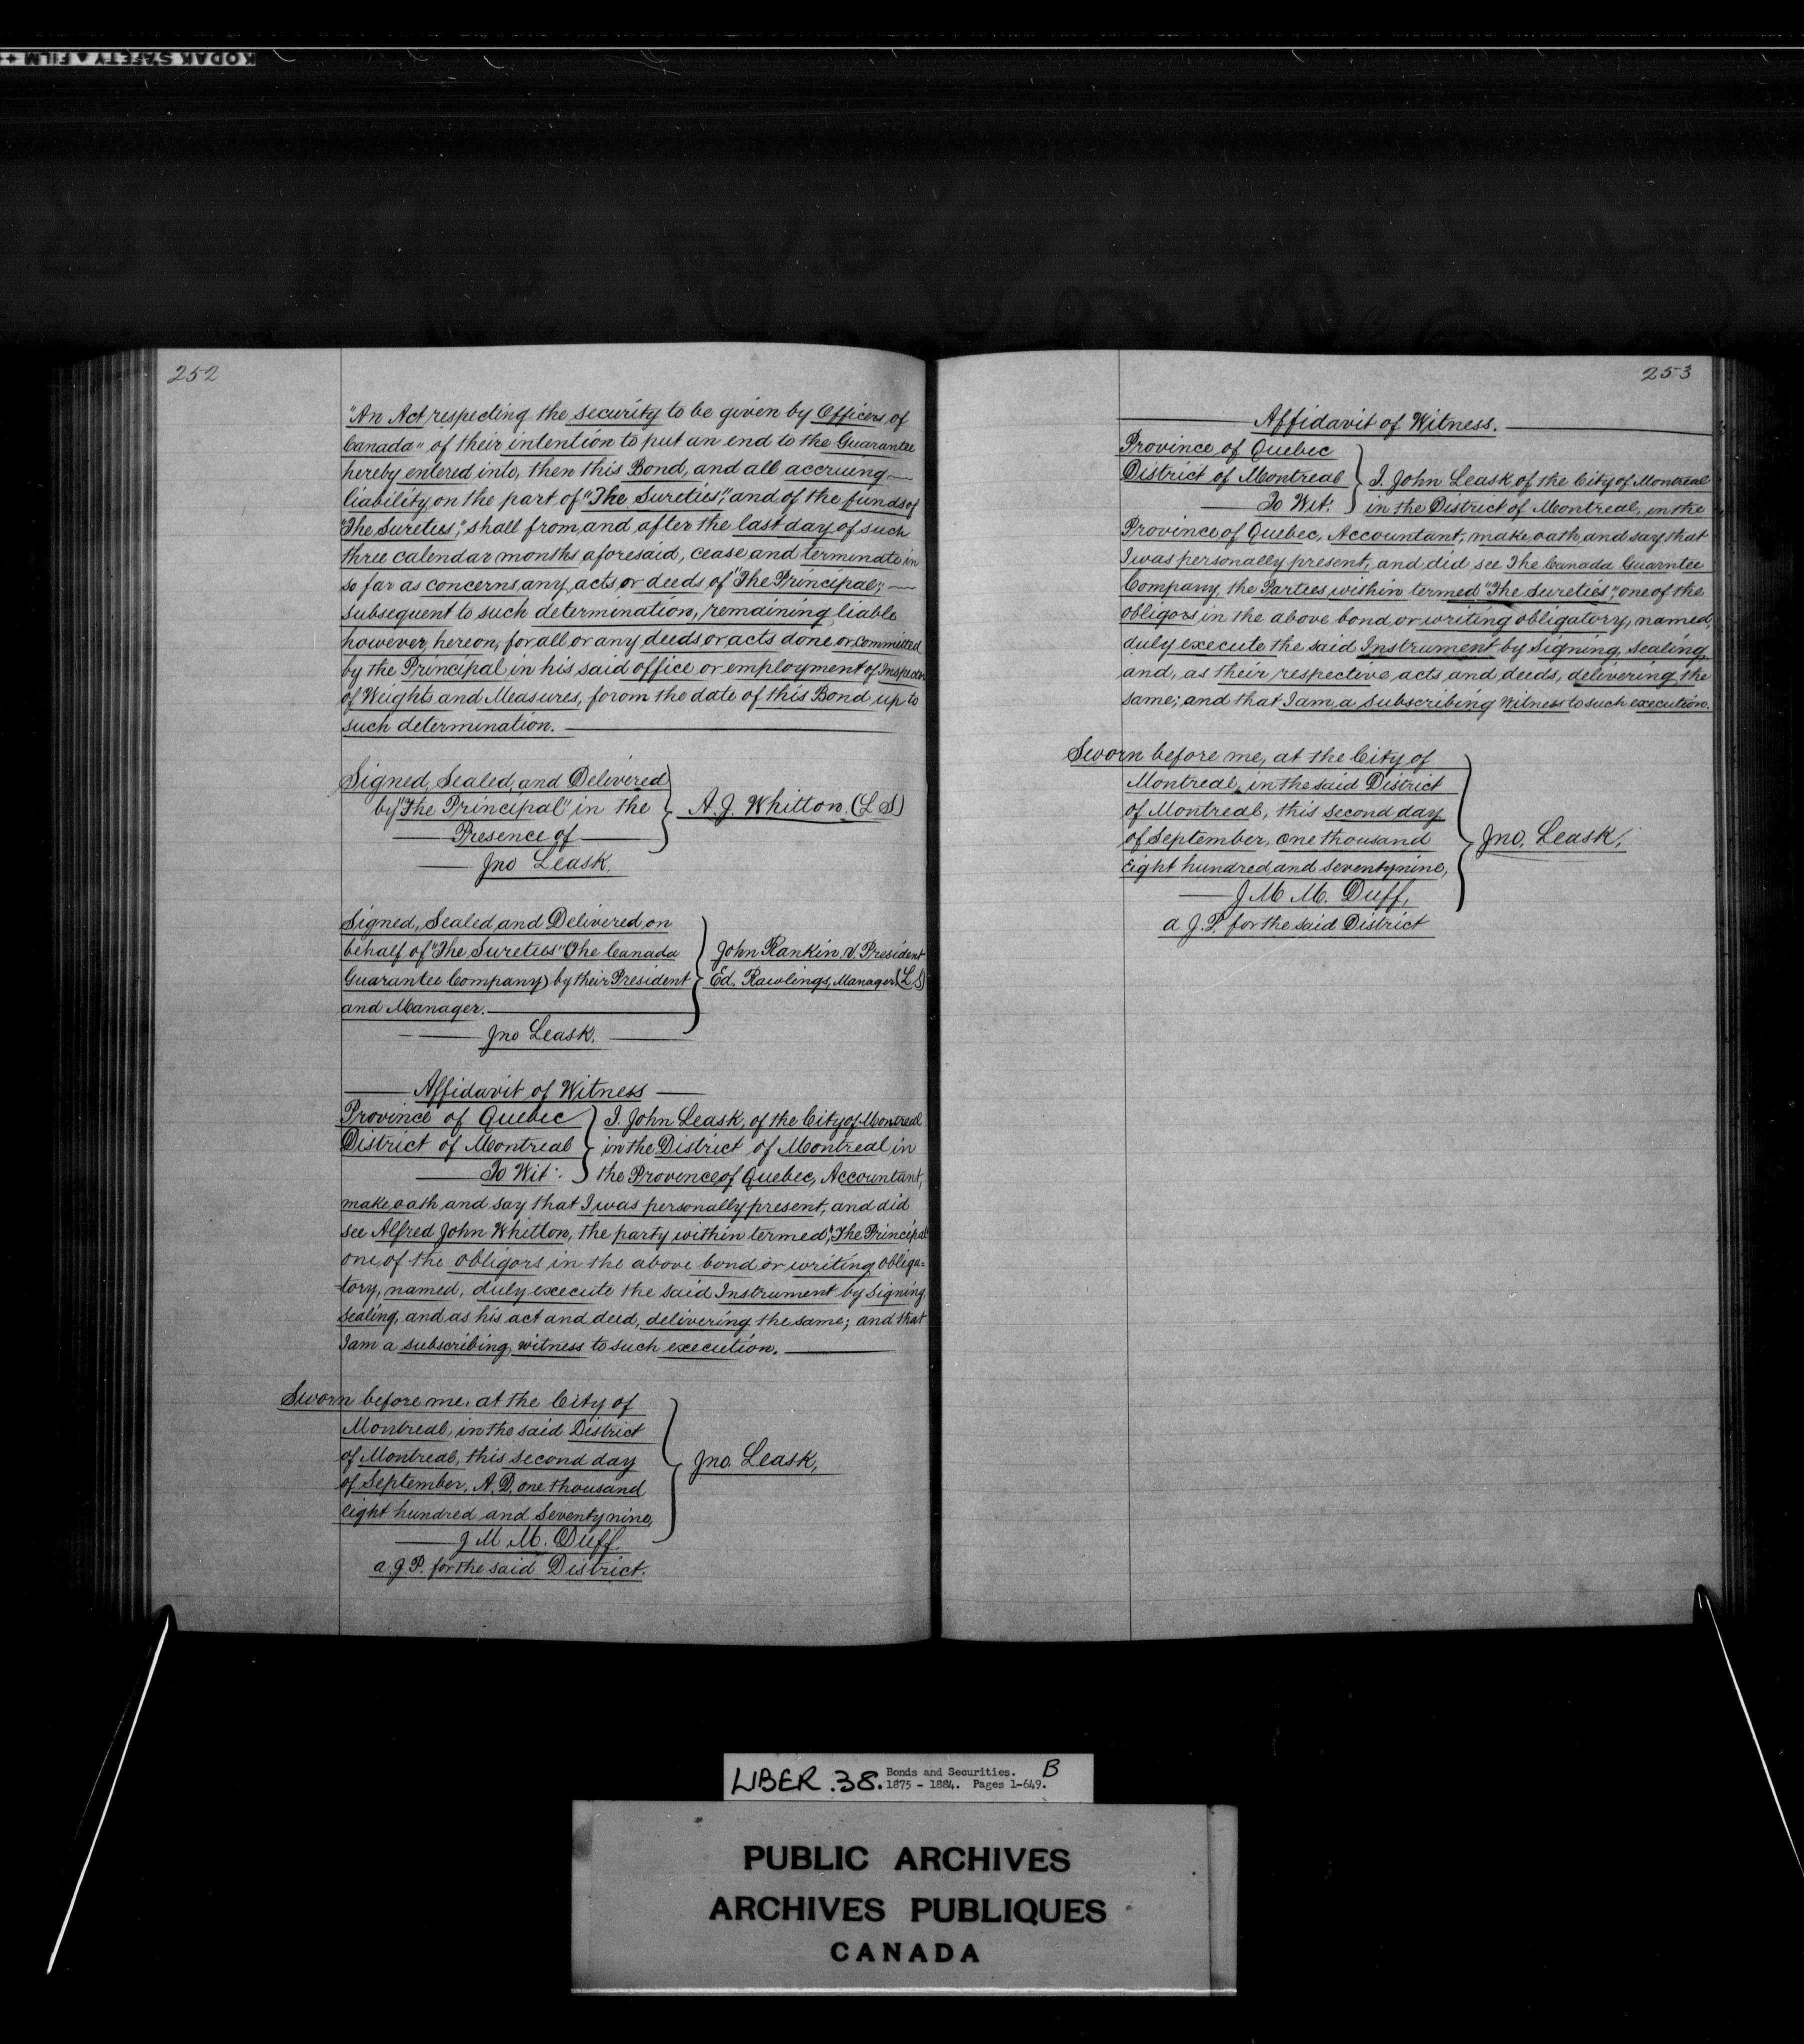 KODAK SAFETY ▲ FILM
252
"An Act respecting the security to be given by Officers of
Canada" of their intention to put an end to the Guarantee
hereby entered into, then this Bond, and all accruing
liability on the part of "The Sureties", and of the funds of
"The Sureties", shall from and after the last day of such
three calendar months aforesaid, cease and terminate in
so far as concerns any acts or deeds of "The Principal",
subsequent to such determination, remaining liable
however, hereon, for all or any deeds or acts done or committed
by the Principal in his said office or employment of Inspector
of Weights and Measures, forom the date of this Bond up to
such determination.
Signed, Sealed, and Delivered
by "The Principal" in the
Presence of
Jno Leask.
A. J. Whitton. (L S)
Signed, Sealed and Delivered on
behalf of "The Sureties" (The Canada
Guarantee Company) by their President
and Manager.
Jno Leask.
John Rankin. V. President
Ed. Rawlings, Manager (L S)
Affidavit of Witness
Province of Quebec
District of Montreal
To Wit:
I, John Leask, of the City of Montreal
in the District of Montreal in
the Province of Quebec, Accountant,
make oath and say that I was personally present, and did
see Alfred John Whitton, the party within termed, "The Principal"
one of the obligors in the above bond or writing obliga-
tory, named, duly execute the said Instrument by Signing
Sealing, and as his act and deed, delivering the same; and that
I am a subscribing witness to such execution.
Sworn before me, at the City of
Montreal, in the said District
of Montreal, this second day
of September, A.D. one thousand
eight hundred and Seventy nine,
J M M. Duff.
a. J. P. for the said District.
Jno. Leask,
253
Affidavit of Witness.
Province of Quebec
District of Montreal
To Wit:
I, John Leask of the City of Montreal
in the District of Montreal, in the
Province of Quebec, Accountant, make oath and say that
I was personally present, and did see The Canada Guarntee
Company, the Parties within termed "The Sureties", one of the
obligors in the above bond or writing obligatory, named,
duly execute the said Instrument by Signing, Sealing
and, as their respective acts and deeds, delivering the
same; and that I am a Subscribing Witness to such execution.
Sworn before me, at the City of
Montreal, in the said District
of Montreal, this second day
of September, one thousand
Eight hundred and Seventy nine,
J M M. Duff,
a J. P. for the said District
Jno, Leask,
LIBER .38. Bonds and Securities. B
1875 - 1884. Pages 1-649.
PUBLIC ARCHIVES
ARCHIVES PUBLIQUES
CANADA